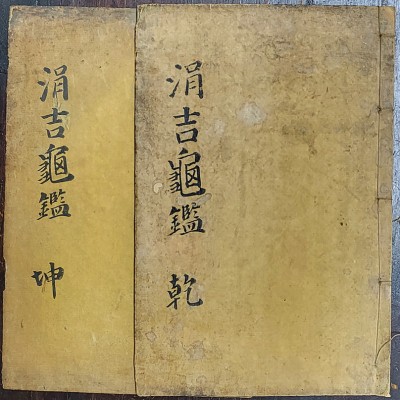 涓吉龜鑑 乾
涓吉龜鑑 坤